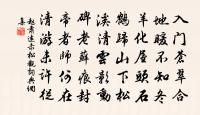 入門蒼翠合
地暖不知冬
羊化屋頭石
鶴歸山下松
溪清雲影動
碑老蘚痕封
帝者師何在
清游未許從
赤松觀詞典網
集